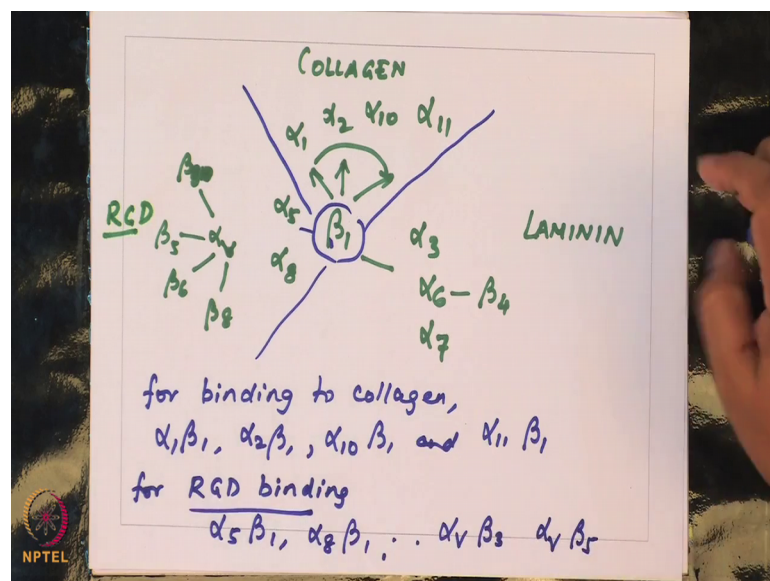 COLLAGEN
α1 α2 α10 α11
RGD
β5 αv
β6
β8
α5
α8
β1
α3
α6 — β4
α7
LAMININ
for binding to collagen,
α1β1, α2β1, α10 β1 and α11 β1
for RGD binding
α5 β1, α8 β1, .. αv β3 αv β5
NPTEL